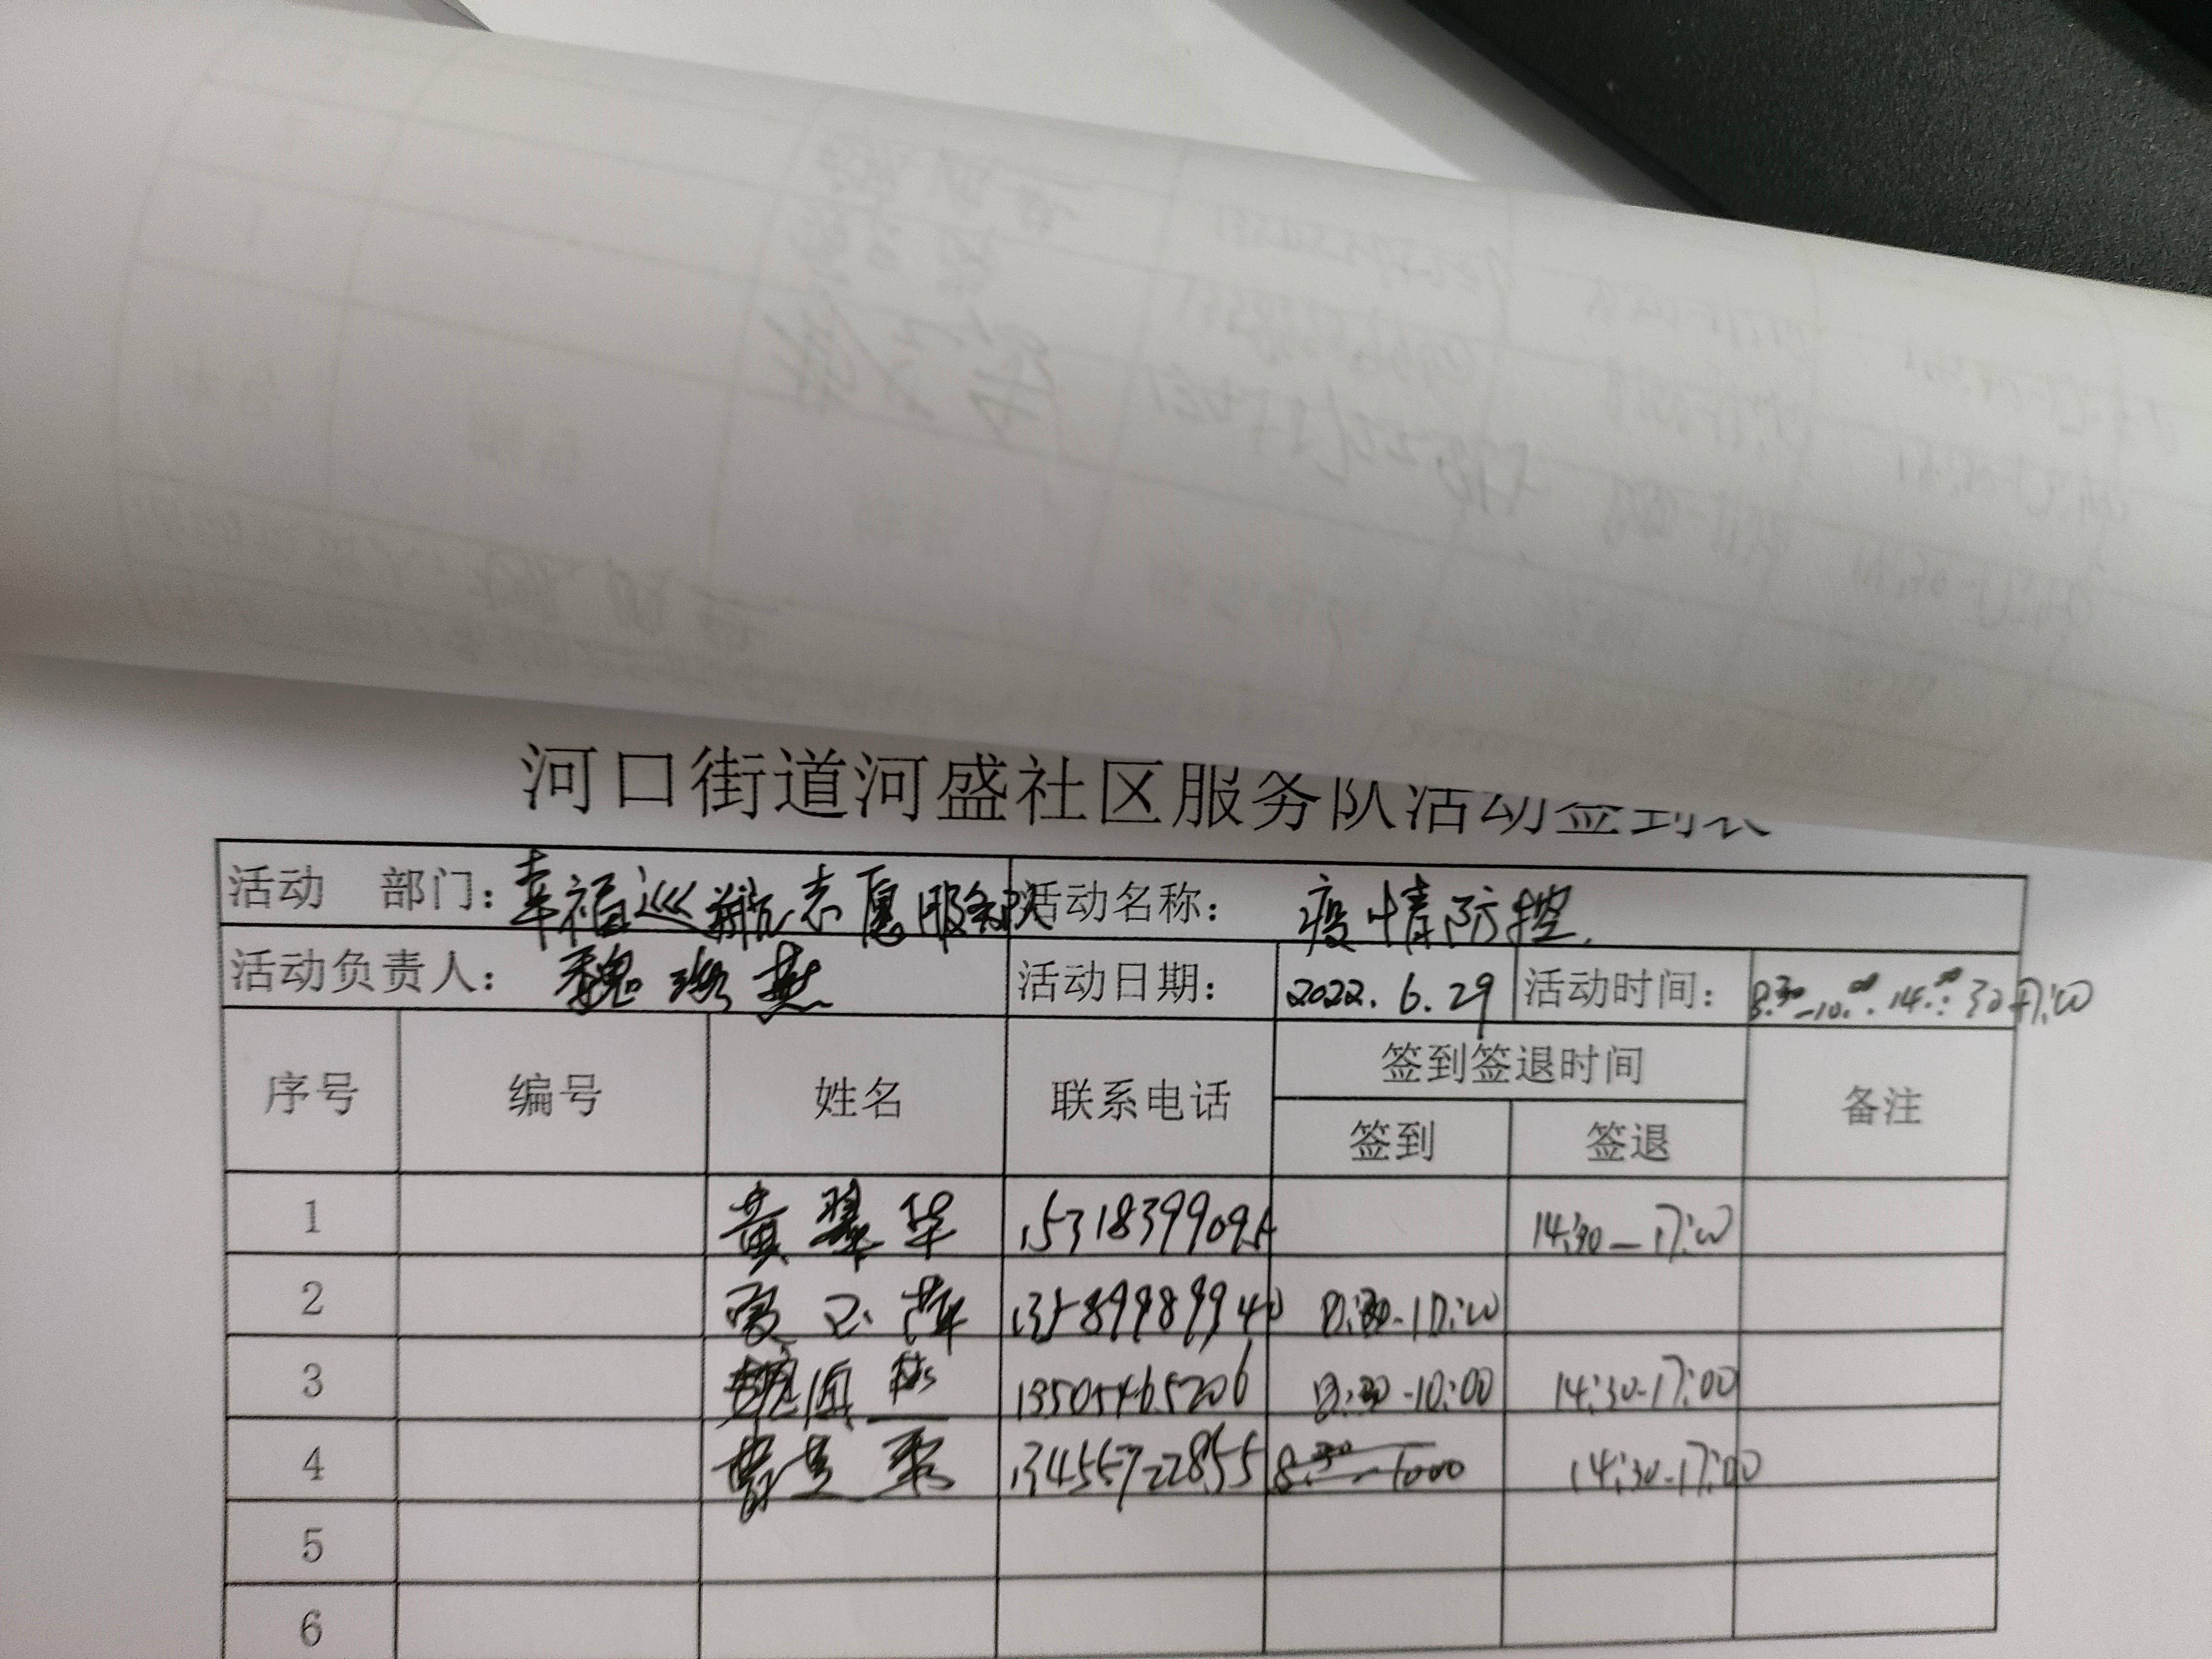 河口街道河盛社区服务队活动签到表
活动 部门：幸福巡航志愿服务队 活动名称： 疫情防控.
活动负责人： 魏 燕 活动日期： 2022.6.29 活动时间： 8:30-10:00. 14:30-17:00
序号 编号 姓名 联系电话 签到签退时间 备注
签到 签退
1 黄翠华 15318399095 14:30-17:00
2 萍 13589989940 8:30-17:00
3 13505465206 8:30-10:00 14:30-17:00
4 13455722855 14:30-17:00
5
6